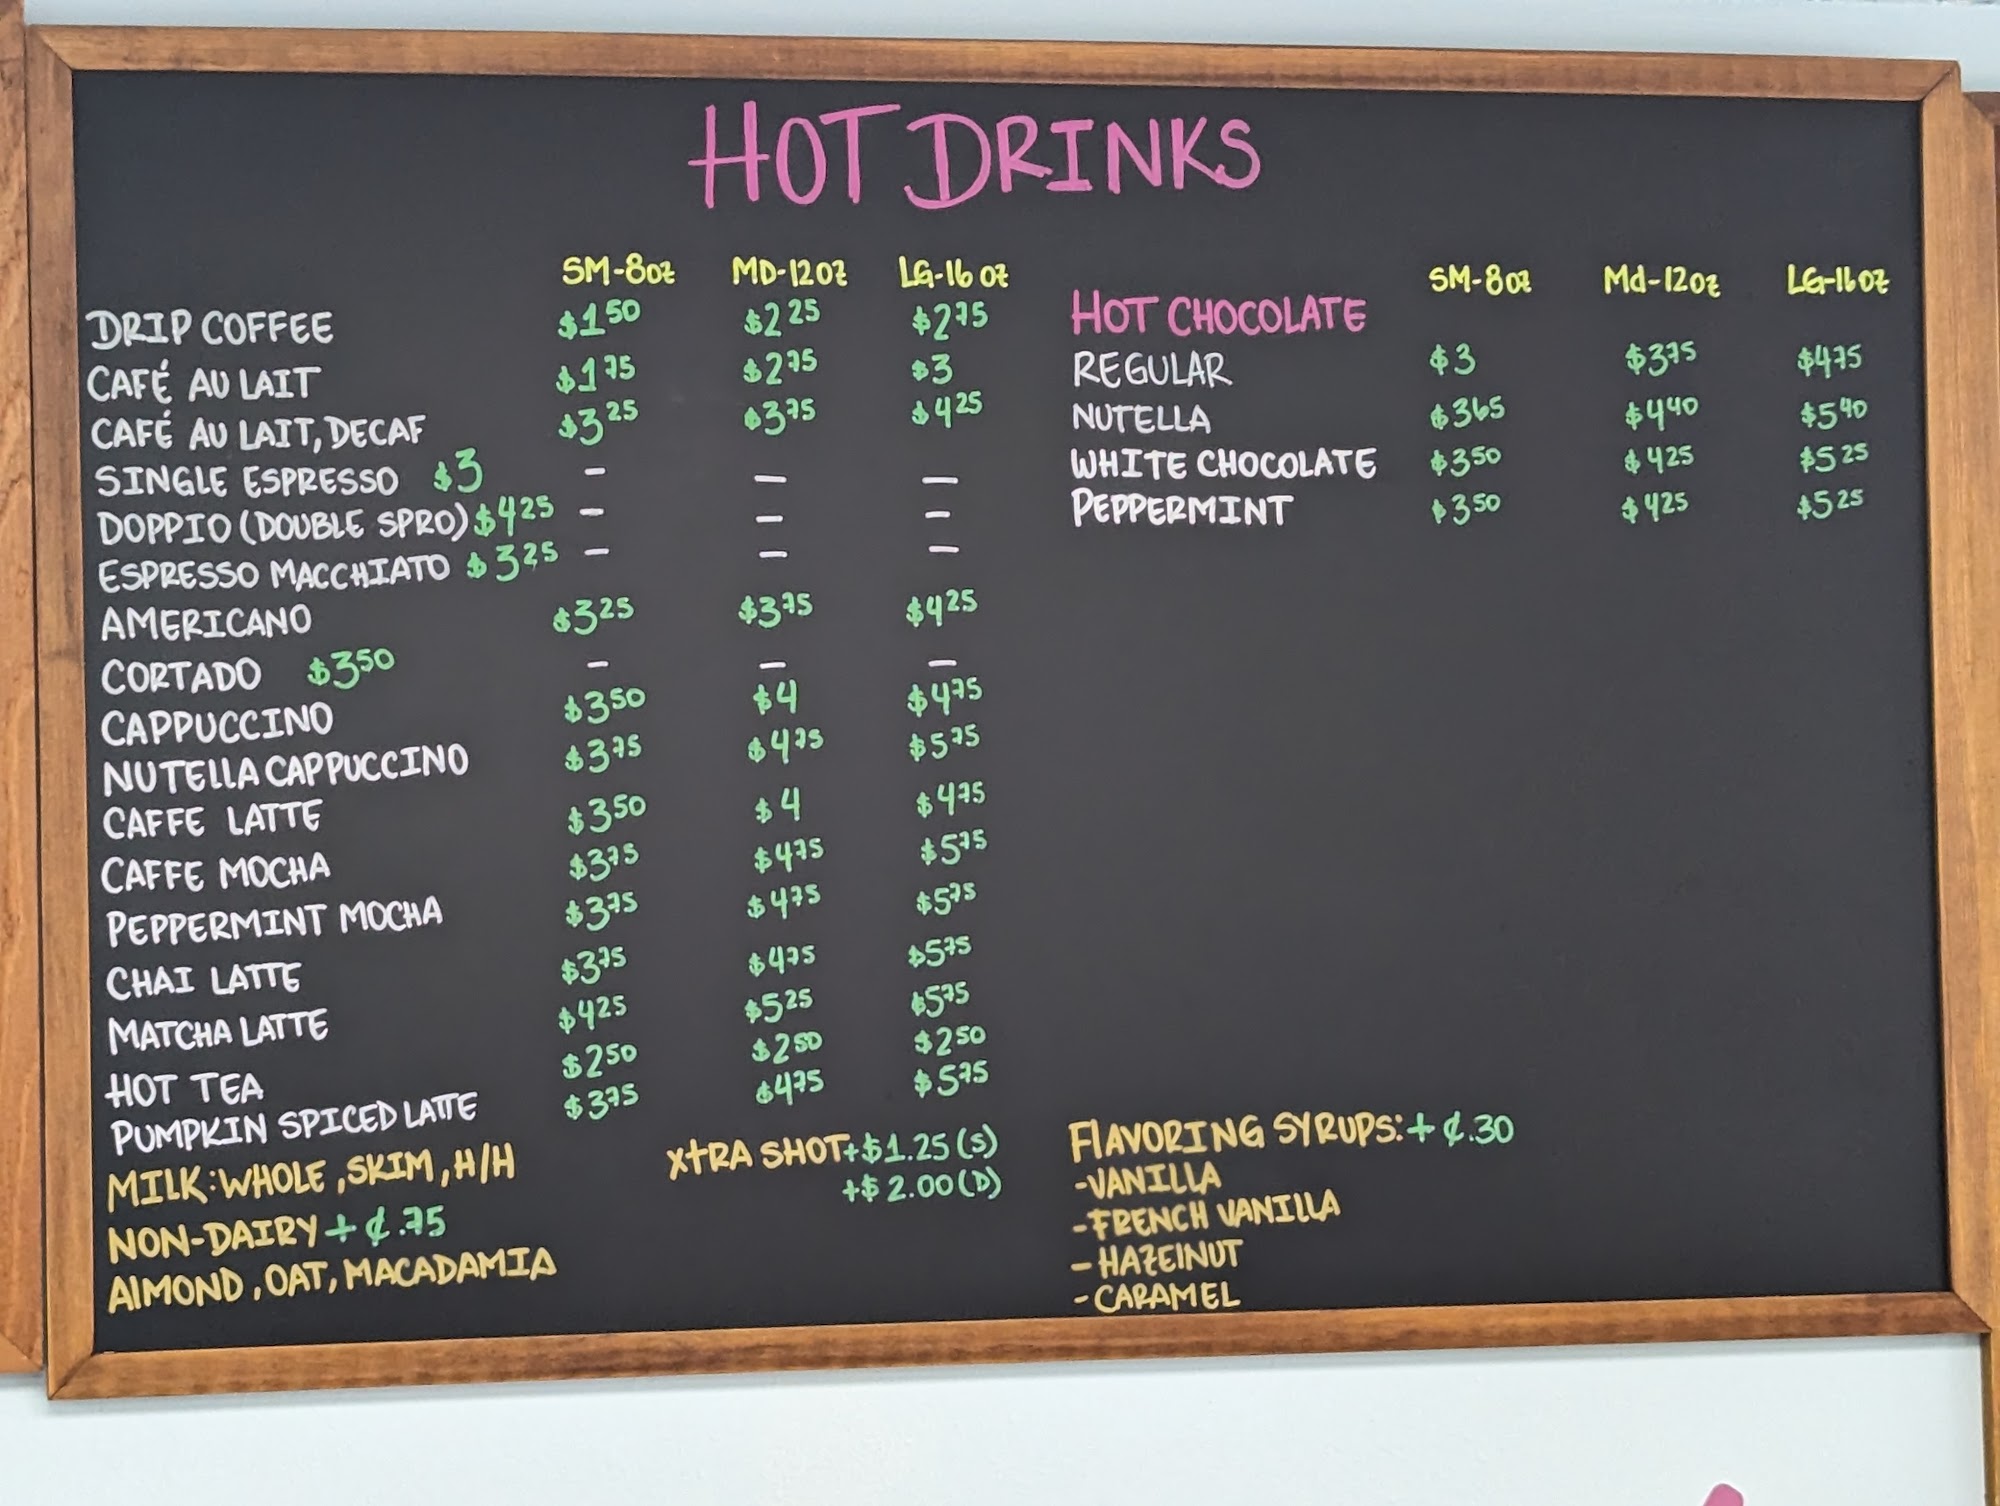 HOT DRINKS
SM-8oz MD-12oz LG-16 oz
DRIP COFFEE $1.50 $2.25 $2.75
CAFÉ AU LAIT $1.75 $2.75 $3
CAFÉ AU LAIT, DECAF $3.25 $3.75 $4.25
SINGLE ESPRESSO $3 - - -
DOPPIO (DOUBLE SPRO) $4.25 - - -
ESPRESSO MACCHIATO $3.25 - - -
AMERICANO $3.25 $3.75 $4.25
CORTADO $3.50 - - -
CAPPUCCINO $3.50 $4 $4.75
NUTELLA CAPPUCCINO $3.75 $4.75 $5.75
CAFFE LATTE $3.50 $4 $4.75
CAFFE MOCHA $3.75 $4.75 $5.75
PEPPERMINT MOCHA $3.75 $4.75 $5.75
CHAI LATTE $3.75 $4.75 $5.75
MATCHA LATTE $4.25 $5.25 $5.75
HOT TEA $2.50 $2.50 $2.50
PUMPKIN SPICED LATTE $3.75 $4.75 $5.75
MILK: WHOLE, SKIM, H/H
NON-DAIRY + ¢.75
AlMOND, OAT, MACADAMIA
XtRA SHOT +$1.25 (S)
+$ 2.00 (D)
SM-8oz Md-12oz LG-16oz
HOT CHOCOLATE
REGULAR $3 $3.75 $4.75
NUTELLA $3.65 $4.40 $5.40
WHITE CHOCOLATE $3.50 $4.25 $5.25
PEPPERMINT $3.50 $4.25 $5.25
FlAVORING SYRUPS: + ¢.30
-VANILLA
-FRENCH VANILLA
-HAZElNUT
-CARAMEL